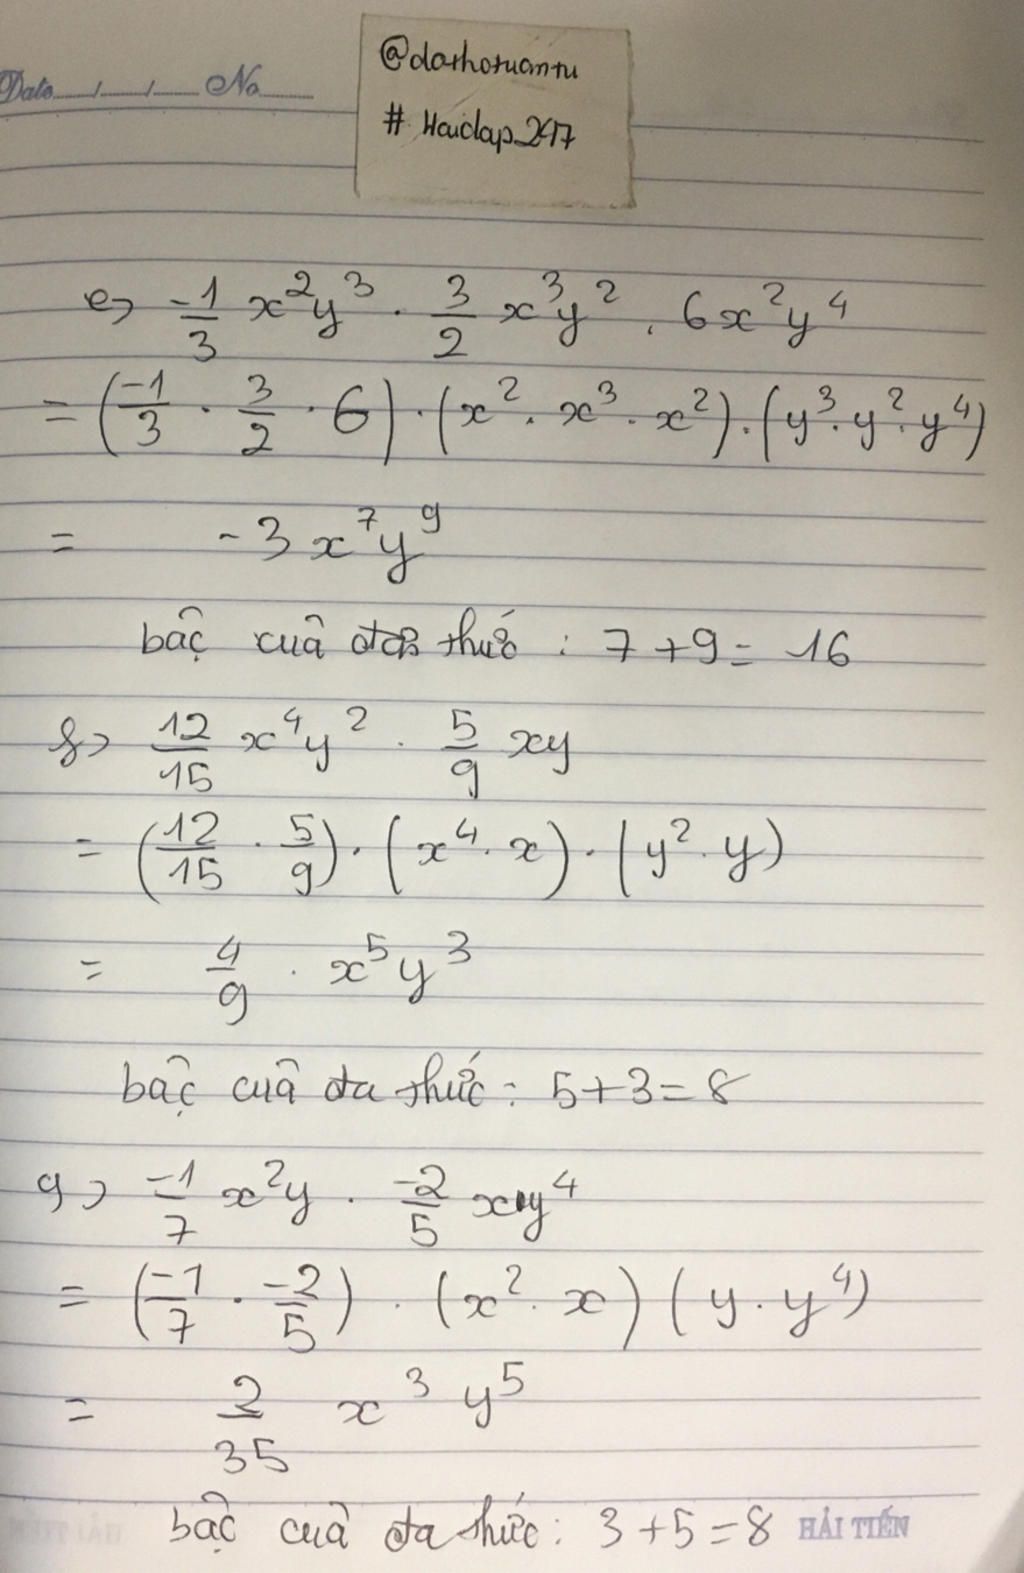 Date / / No
@darhotuantu
# Hoidap247
e) -1/3 x²y³ . 3/2 x³y² . 6x²y⁴
= (-1/3 . 3/2 . 6) . (x² . x³ . x²) . (y³ . y² . y⁴)
= -3x⁷y⁹
bậc cuả thức : 7 + 9 = 16
f) 12/15 x⁴y² . 5/9 xy
= (12/15 . 5/9) . (x⁴ . x) . (y² . y)
= 4/9 . x⁵y³
bậc cuả đa thức : 5 + 3 = 8
g) -1/7 x²y . -2/5 xy⁴
= (-1/7 . -2/5) . (x² . x) (y . y⁴)
= 2/35 x³ y⁵
bậc cuả đa thức : 3 + 5 = 8 HẢI TIẾN